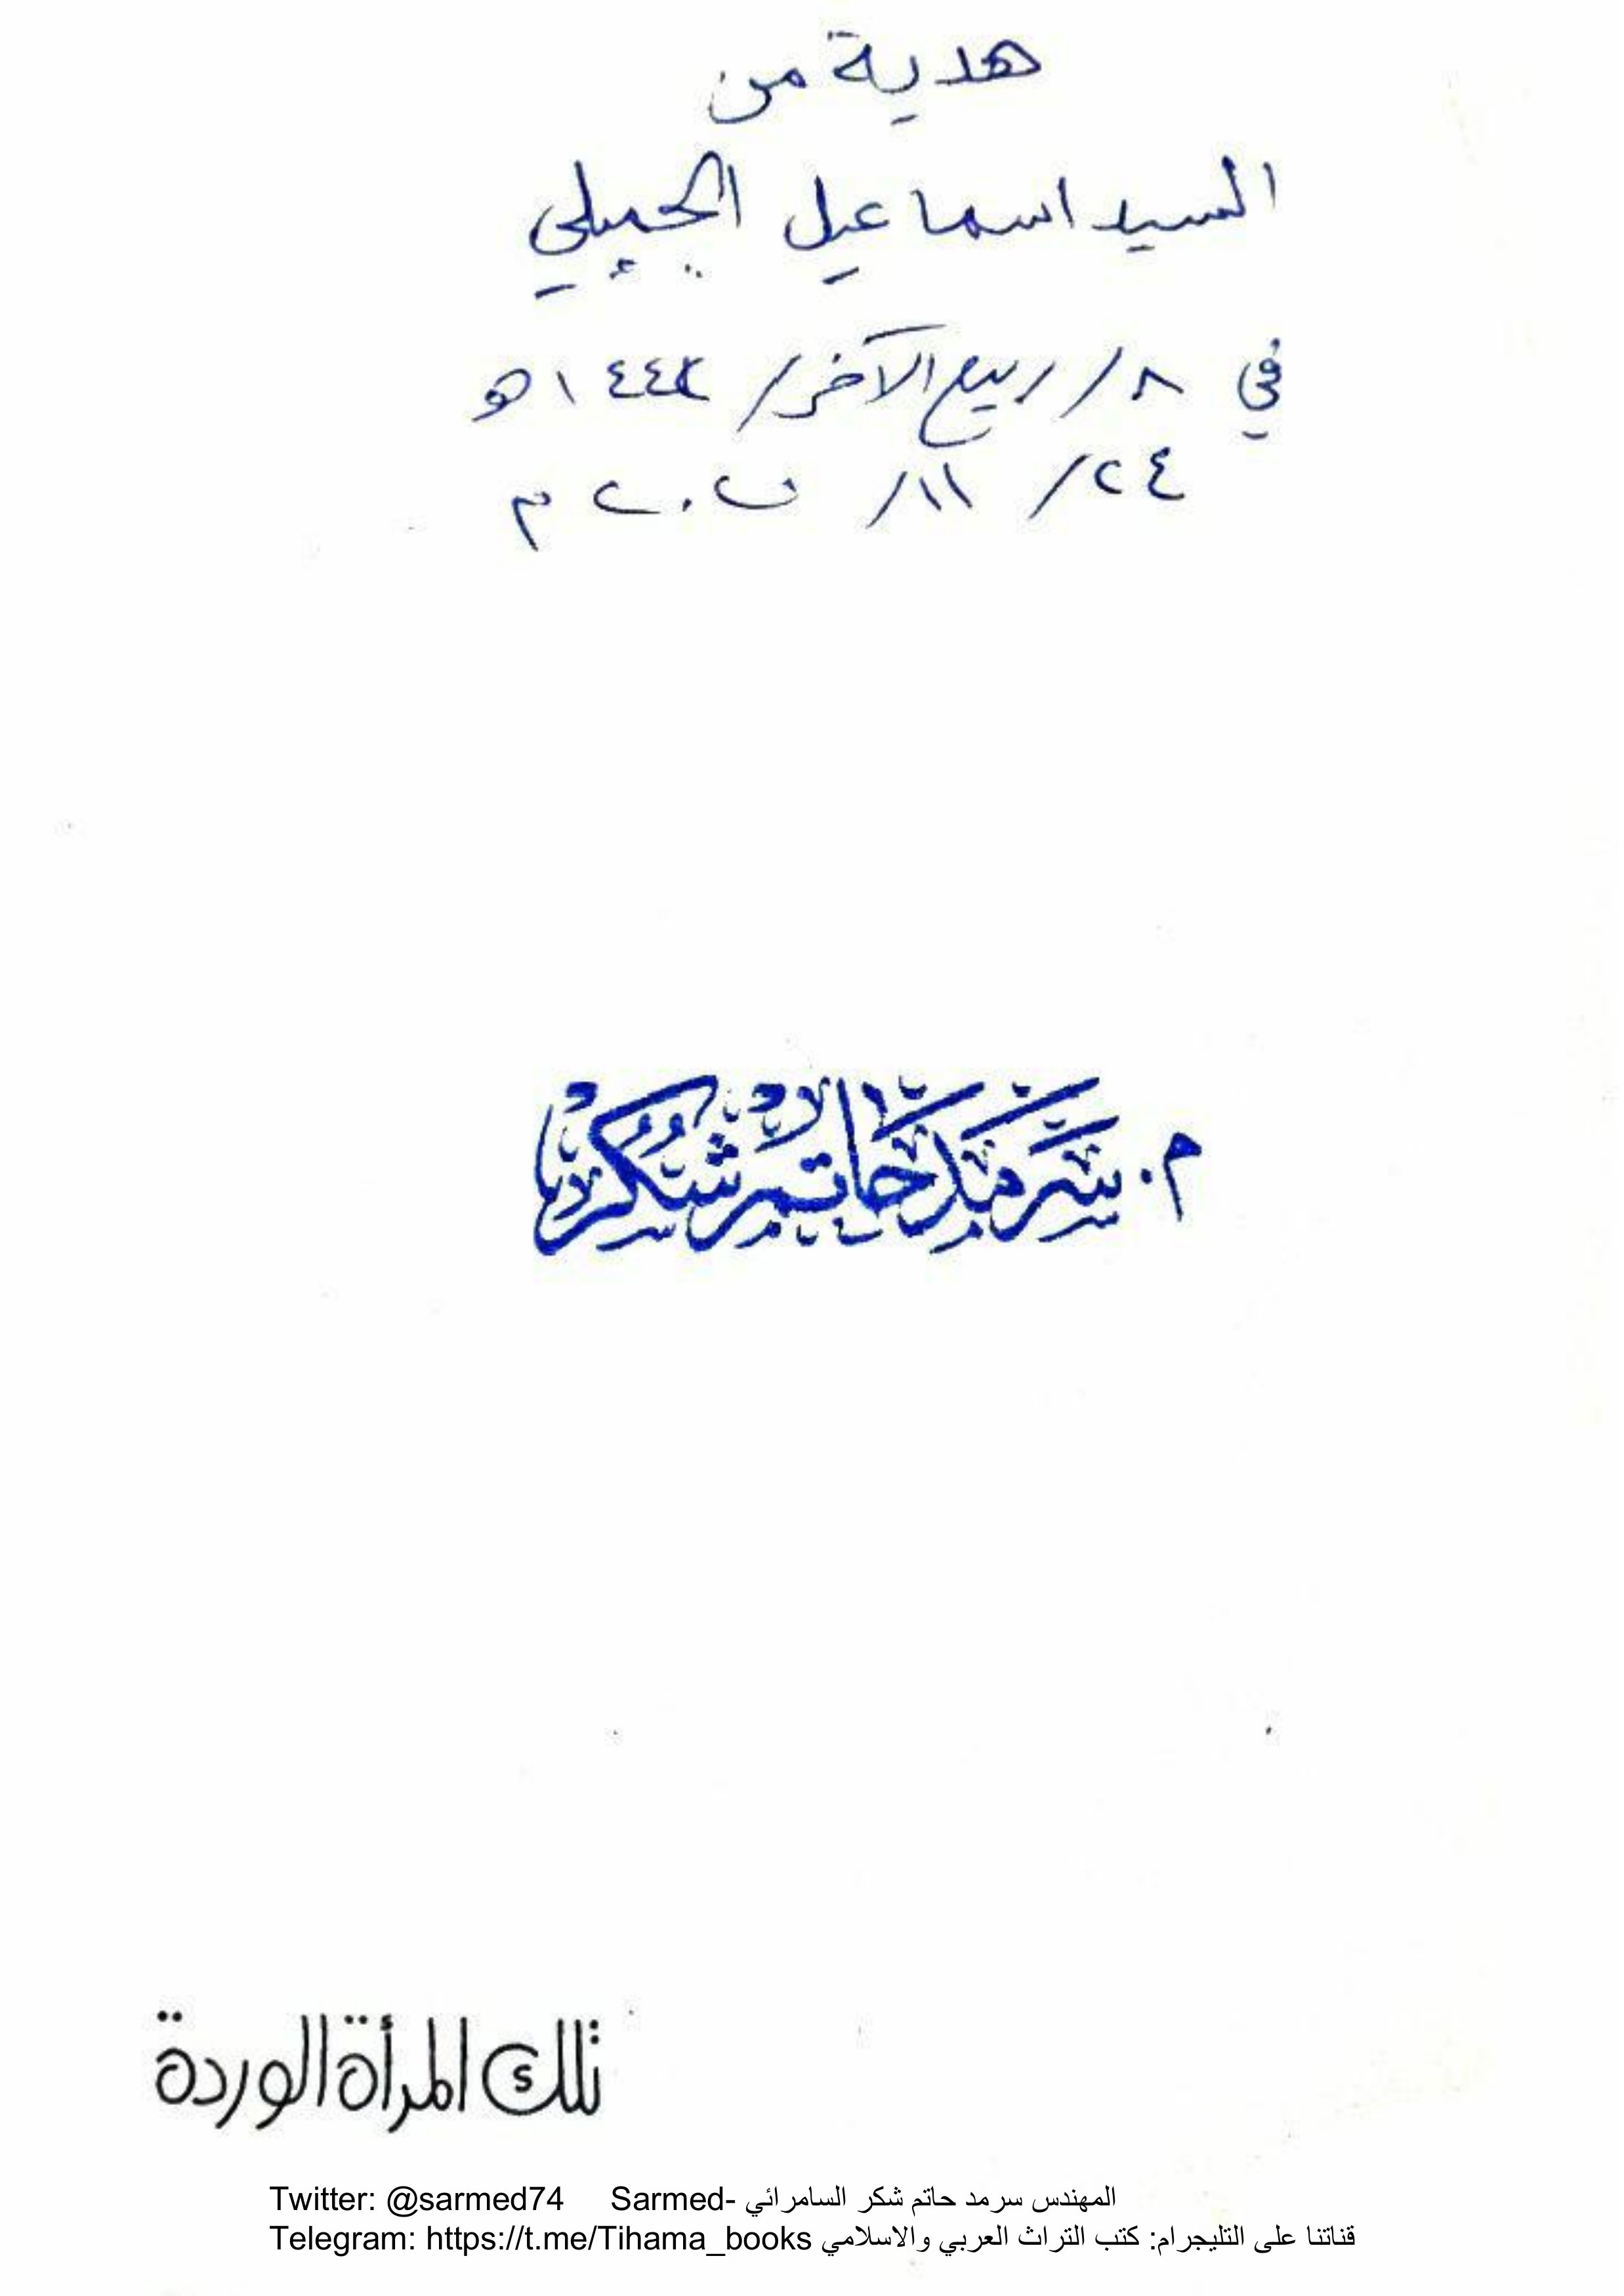 هدية من
السيد اسماعيل الجميلي
في ٨/ ربيع الآخر/ ١٤٤٢هـ
٢٤/ ١١/ ٢٠٢٠م
م. سرمد حاتم شكر
تلك المرأة الوردة
Twitter: @sarmed74 Sarmed- المهندس سرمد حاتم شكر السامرائي
Telegram: https://t.me/Tihama_books قناتنا على التليجرام: كتب التراث العربي والاسلامي